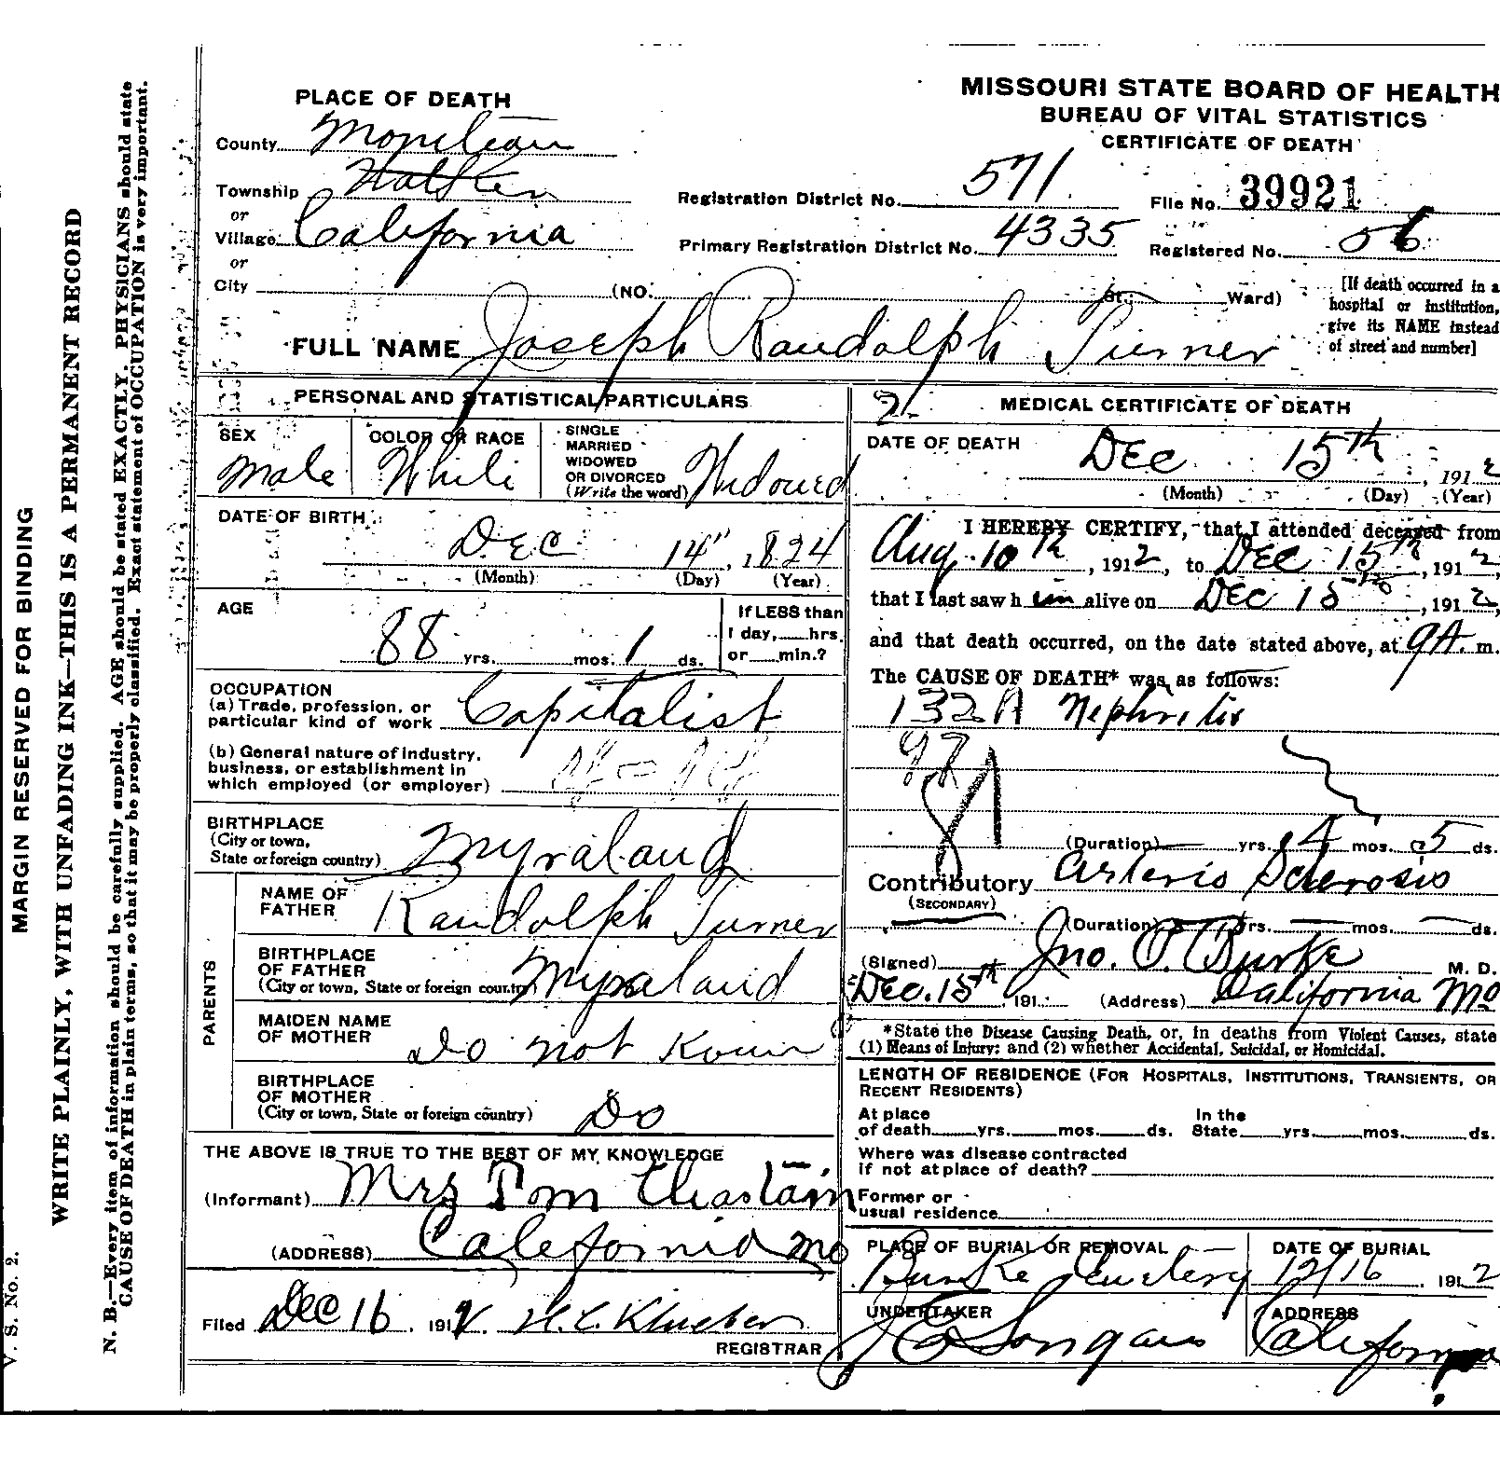 MISSOURI STATE BOARD OF HEALTH
BUREAU OF VITAL STATISTICS
CERTIFICATE OF DEATH
PLACE OF DEATH
County Moniteau
Township Walker
or
Village California
or
City (NO. St.; Ward)
Registration District No. 571
File No. 39921
Primary Registration District No. 4335
Registered No. 56
[If death occurred in a
hospital or institution,
give its NAME instead
of street and number]
FULL NAME Joseph Randolph Turner
PERSONAL AND STATISTICAL PARTICULARS
SEX
Male
COLOR OR RACE
White
SINGLE
MARRIED
WIDOWED
OR DIVORCED
(Write the word) Widowed
DATE OF BIRTH
Dec 14", 1824
(Month) (Day) (Year)
AGE
88 yrs. mos. 1 ds.
If LESS than
1 day, hrs.
or min.?
OCCUPATION
(a) Trade, profession, or
particular kind of work Capitalist
(b) General nature of industry,
business, or establishment in
which employed (or employer)
BIRTHPLACE
(City or town,
State or foreign country) Myraland
PARENTS
NAME OF
FATHER Randolph Turner
BIRTHPLACE
OF FATHER
(City or town, State or foreign country) Myraland
MAIDEN NAME
OF MOTHER Do not Know
BIRTHPLACE
OF MOTHER
(City or town, State or foreign country) Do
THE ABOVE IS TRUE TO THE BEST OF MY KNOWLEDGE
(Informant) Mrs Tom Chastain
(ADDRESS) California Mo
Filed Dec 16, 1912 H.C.
REGISTRAR
2
MEDICAL CERTIFICATE OF DEATH
DATE OF DEATH
Dec 15th, 1912
(Month) (Day) (Year)
I HEREBY CERTIFY, that I attended deceased from
Aug. 10th, 1912, to Dec 15th, 1912,
that I last saw h im alive on Dec 15th, 1912,
and that death occurred, on the date stated above, at 9A. m.
The CAUSE OF DEATH* was as follows:
132A Nephritis
(Duration) yrs. 4 mos. 5 ds.
Contributory Arterio Sclerosis
(SECONDARY)
(Duration) yrs. mos. ds.
(Signed) Jno. P. Burke M. D.
Dec. 15th 191 (Address) California Mo
*State the Disease Causing Death, or, in deaths from Violent Causes, state
(1) Means of Injury; and (2) whether Accidental, Suicidal, or Homicidal.
LENGTH OF RESIDENCE (FOR HOSPITALS, INSTITUTIONS, TRANSIENTS, OR
RECENT RESIDENTS)
At place
of death yrs. mos. ds.
In the
State yrs. mos. ds.
Where was disease contracted
if not at place of death?
Former or
usual residence
PLACE OF BURIAL OR REMOVAL
Burke Cemetery
DATE OF BURIAL
12/16 1912
UNDERTAKER
ADDRESS
California
MARGIN RESERVED FOR BINDING
WRITE PLAINLY, WITH UNFADING INK—THIS IS A PERMANENT RECORD
N. B.—Every item of information should be carefully supplied. AGE should be stated EXACTLY. PHYSICIANS should state
CAUSE OF DEATH in plain terms, so that it may be properly classified. Exact statement of OCCUPATION is very important.
V. S. No. 2.